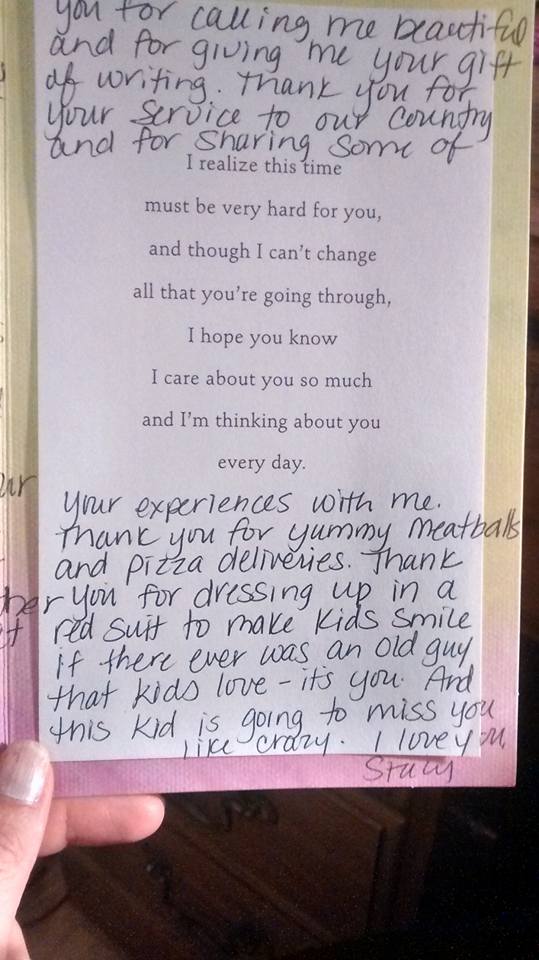 you for calling me beautiful
and for giving me your gift
of writing. Thank you for
your Service to our Country
and for Sharing Some of
I realize this time
must be very hard for you,
and though I can't change
all that you're going through,
I hope you know
I care about you so much
and I'm thinking about you
every day.
your experiences with me.
Thank you for yummy meatballs
and pizza deliveries. Thank
you for dressing up in a
red suit to make kids smile
if there ever was an old guy
that kids love - it's you. And
this kid is going to miss you
like crazy. I love you,
Stacy